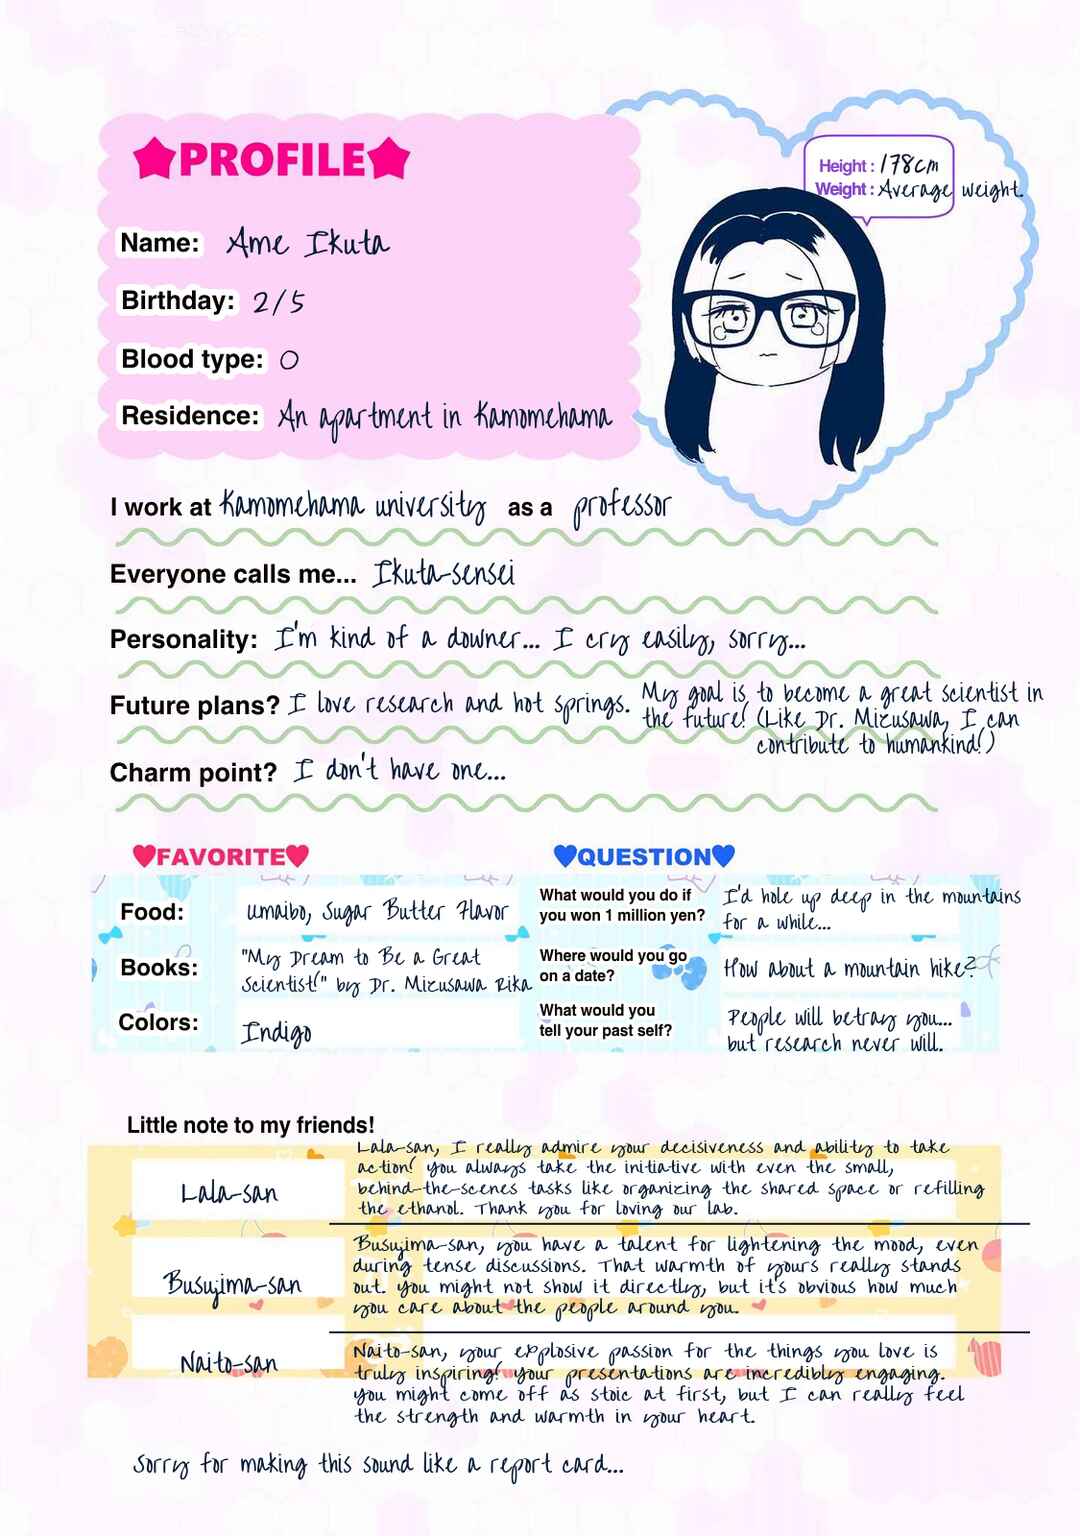 ★PROFILE★
Height : 178cm
Weight : Average weight.
Name: Ame Ikuta
Birthday: 2/5
Blood type: O
Residence: An apartment in Kamomehama
I work at Kamomehama university as a professor
Everyone calls me... Ikuta-sensei
Personality: I'm kind of a downer... I cry easily, sorry...
Future plans? I love research and hot springs. My goal is to become a great scientist in
the future! (Like Dr. Mizusawa, I can
contribute to humankind!)
Charm point? I don't have one...
♥FAVORITE♥
Food: Umaibo, Sugar Butter Flavor
Books: "My Dream to Be a Great
Scientist!" by Dr. Mizusawa Rika
Colors: Indigo
♥QUESTION♥
What would you do if
you won 1 million yen?
I'd hole up deep in the mountains
for a while...
Where would you go
on a date?
How about a mountain hike?
What would you
tell your past self?
People will betray you...
but research never will.
Little note to my friends!
Lala-san
Lala-san, I really admire your decisiveness and ability to take
action! You always take the initiative with even the small,
behind-the-scenes tasks like organizing the shared space or refilling
the ethanol. Thank you for loving our lab.
Busujima-san
Busujima-san, you have a talent for lightening the mood, even
during tense discussions. That warmth of yours really stands
out. You might not show it directly, but it's obvious how much
you care about the people around you.
Naito-san
Naito-san, your explosive passion for the things you love is
truly inspiring! Your presentations are incredibly engaging.
You might come off as stoic at first, but I can really feel
the strength and warmth in your heart.
Sorry for making this sound like a report card...